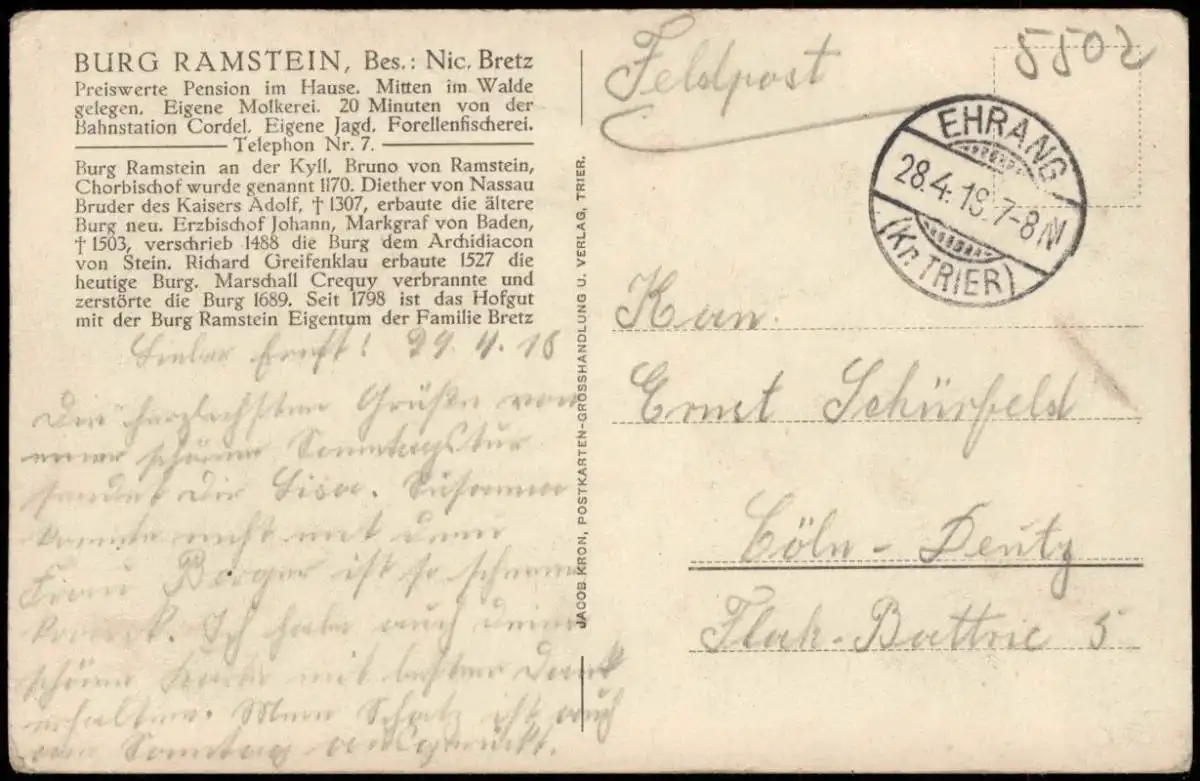 BURG RAMSTEIN, Bes.: Nic. Bretz
Preiswerte Pension im Hause. Mitten im Walde
gelegen. Eigene Molkerei. 20 Minuten von der
Bahnstation Cordel. Eigene Jagd. Forellenfischerei.
Telephon Nr. 7.
Burg Ramstein an der Kyll. Bruno von Ramstein,
Chorbischof wurde genannt 1170. Diether von Nassau
Bruder des Kaisers Adolf, † 1307, erbaute die ältere
Burg neu. Erzbischof Johann, Markgraf von Baden,
† 1503, verschrieb 1488 die Burg dem Archidiacon
von Stein. Richard Greifenklau erbaute 1527 die
heutige Burg. Marschall Crequy verbrannte und
zerstörte die Burg 1689. Seit 1798 ist das Hofgut
mit der Burg Ramstein Eigentum der Familie Bretz
Lieber Ernst! 29.4.18
Die herzlichsten Grüße von
einer schönen Sonntagstur
sendet Dir Lisa. Susanna
konnte nicht mit denn
Frau Borger ist so schwer
krank. Ich habe auch deine
schöne Karte mit bestem Dank
erhalten. Mein Schatz ist auch
am Sonntag ausgerückt.
JACOB KRON, POSTKARTEN-GROSSHANDLUNG U. VERLAG, TRIER.
Feldpost
5502
EHRANG
28.4.18. 7-8 N
(Kr. TRIER)
Kan.
Ernst Schürfeld
Cöln - Deutz
Flak-Battrie 5